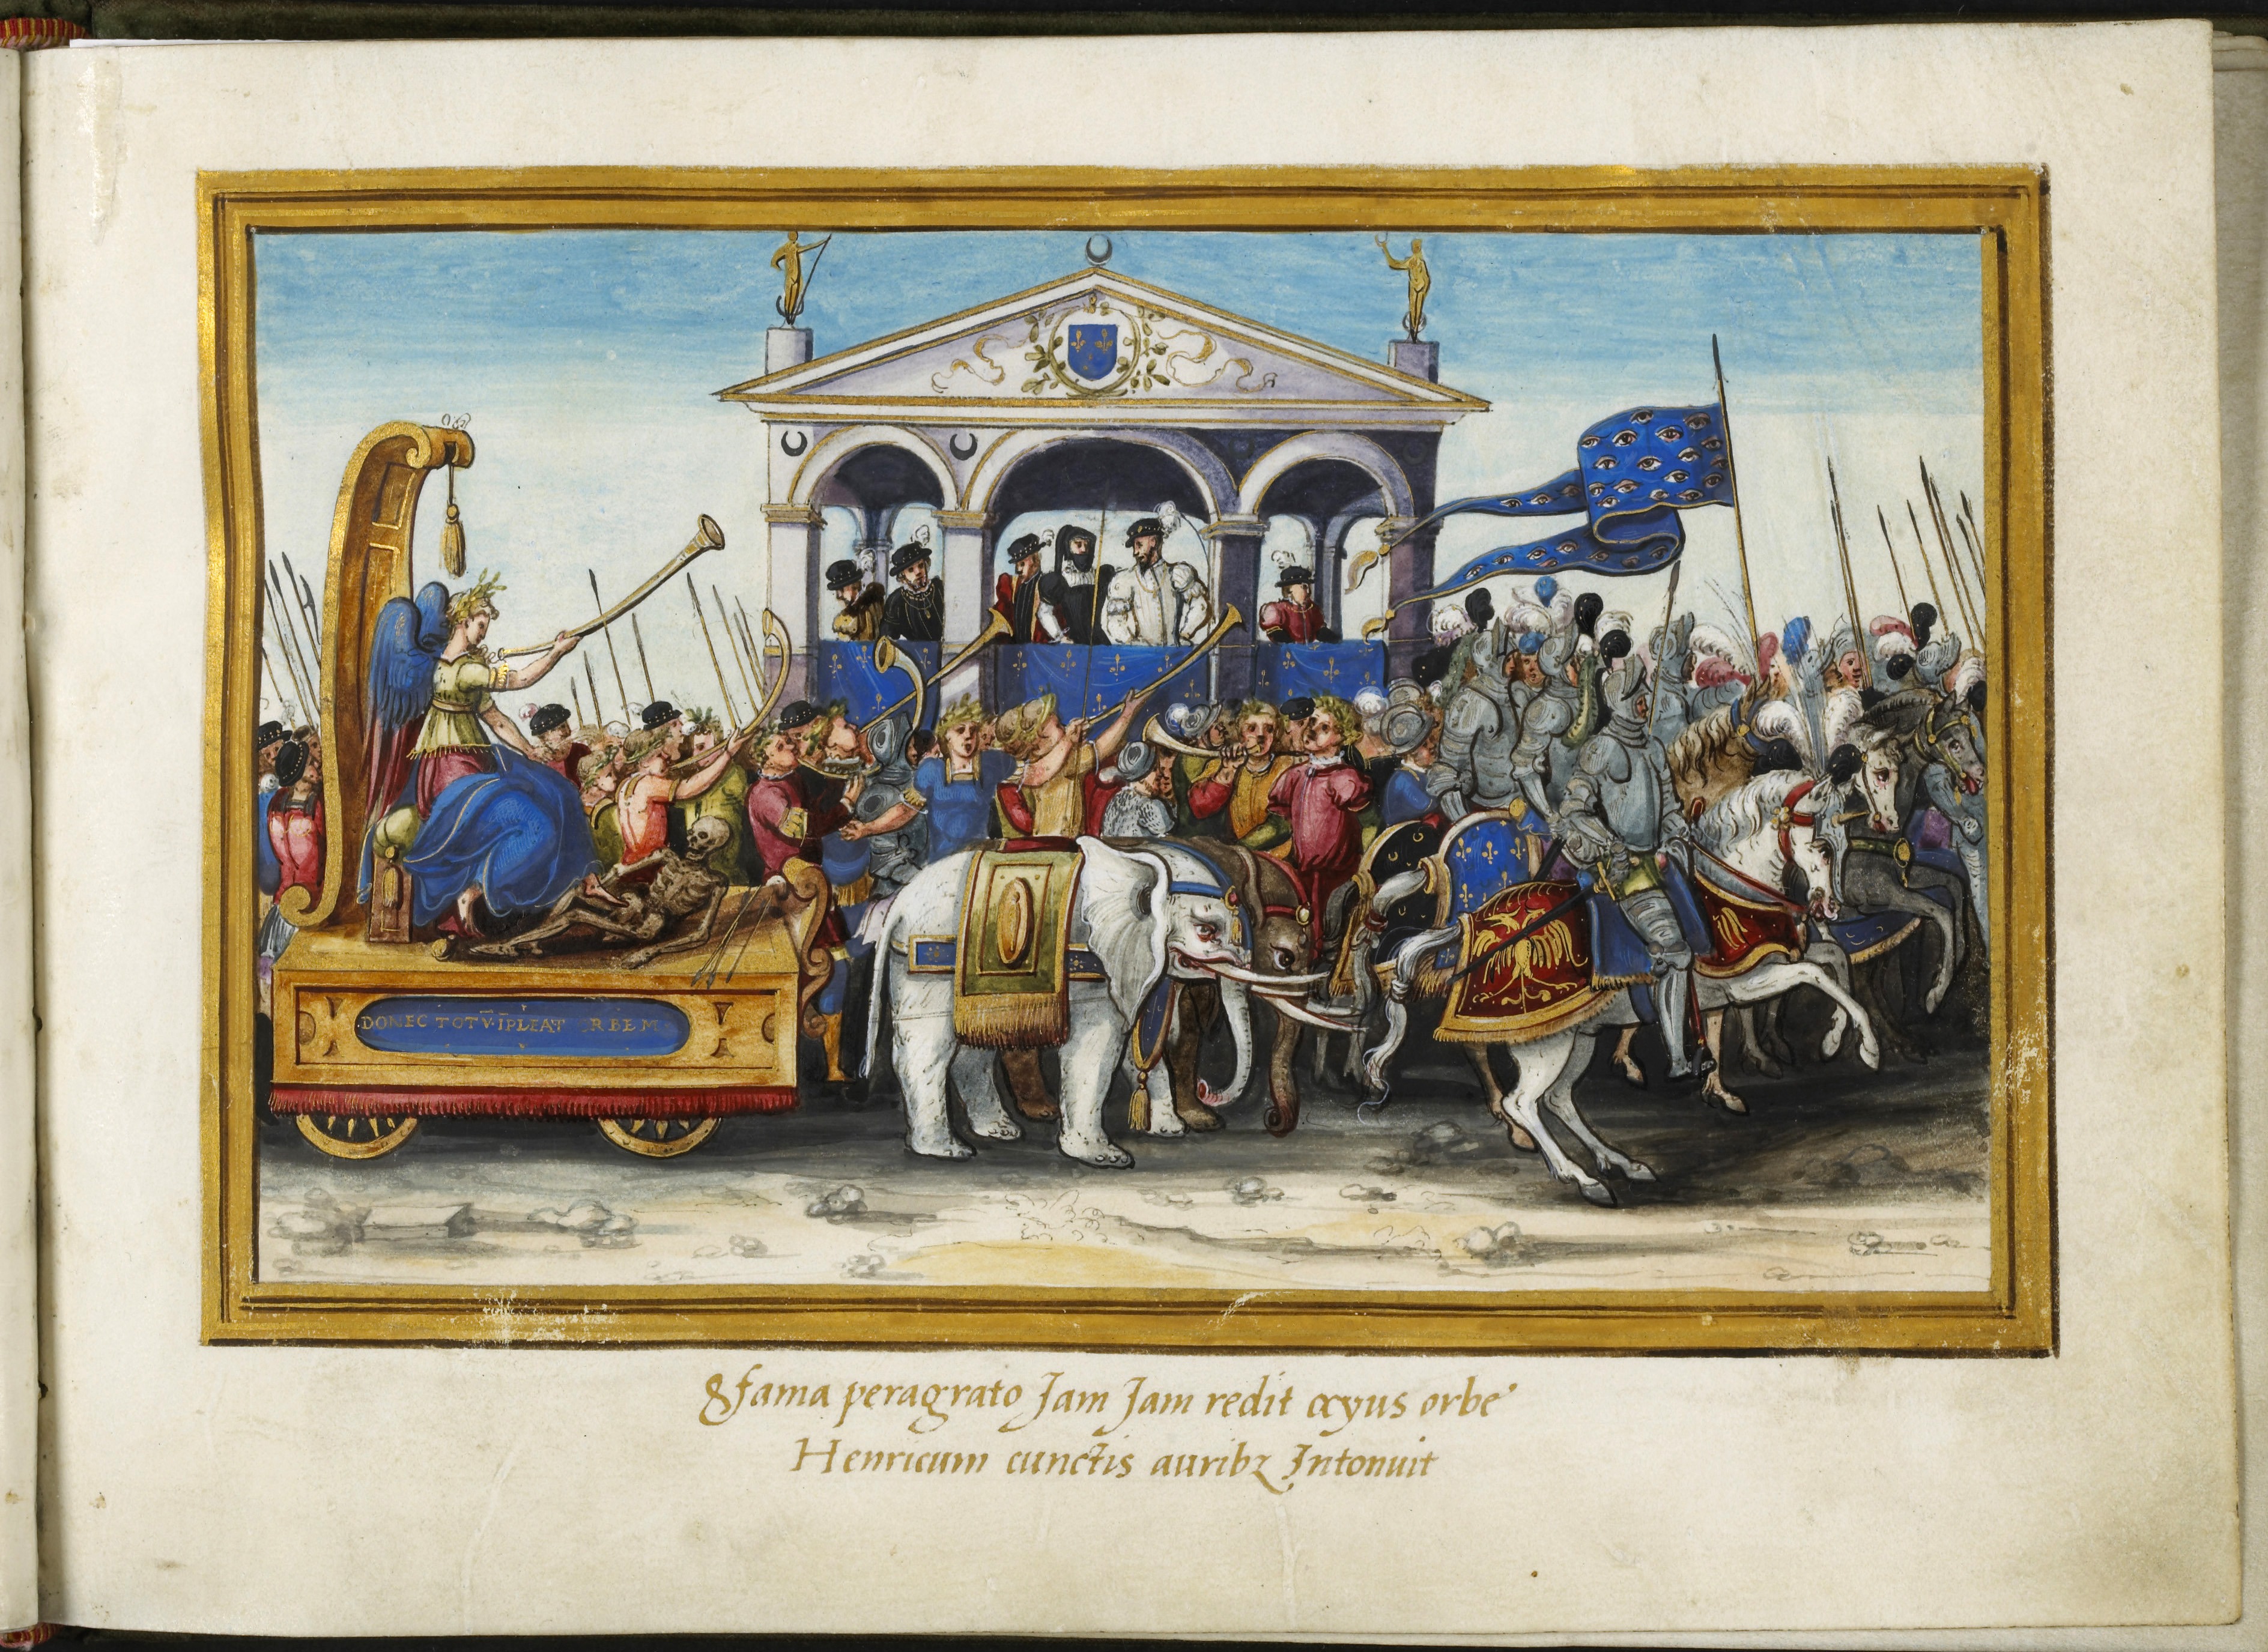 DONEC TOTV̄ ĪPLEAT ORBEM
& fama peragrato Jam Jam redit ocyus orbe
Henricum cunctis auribꝫ Intonuit